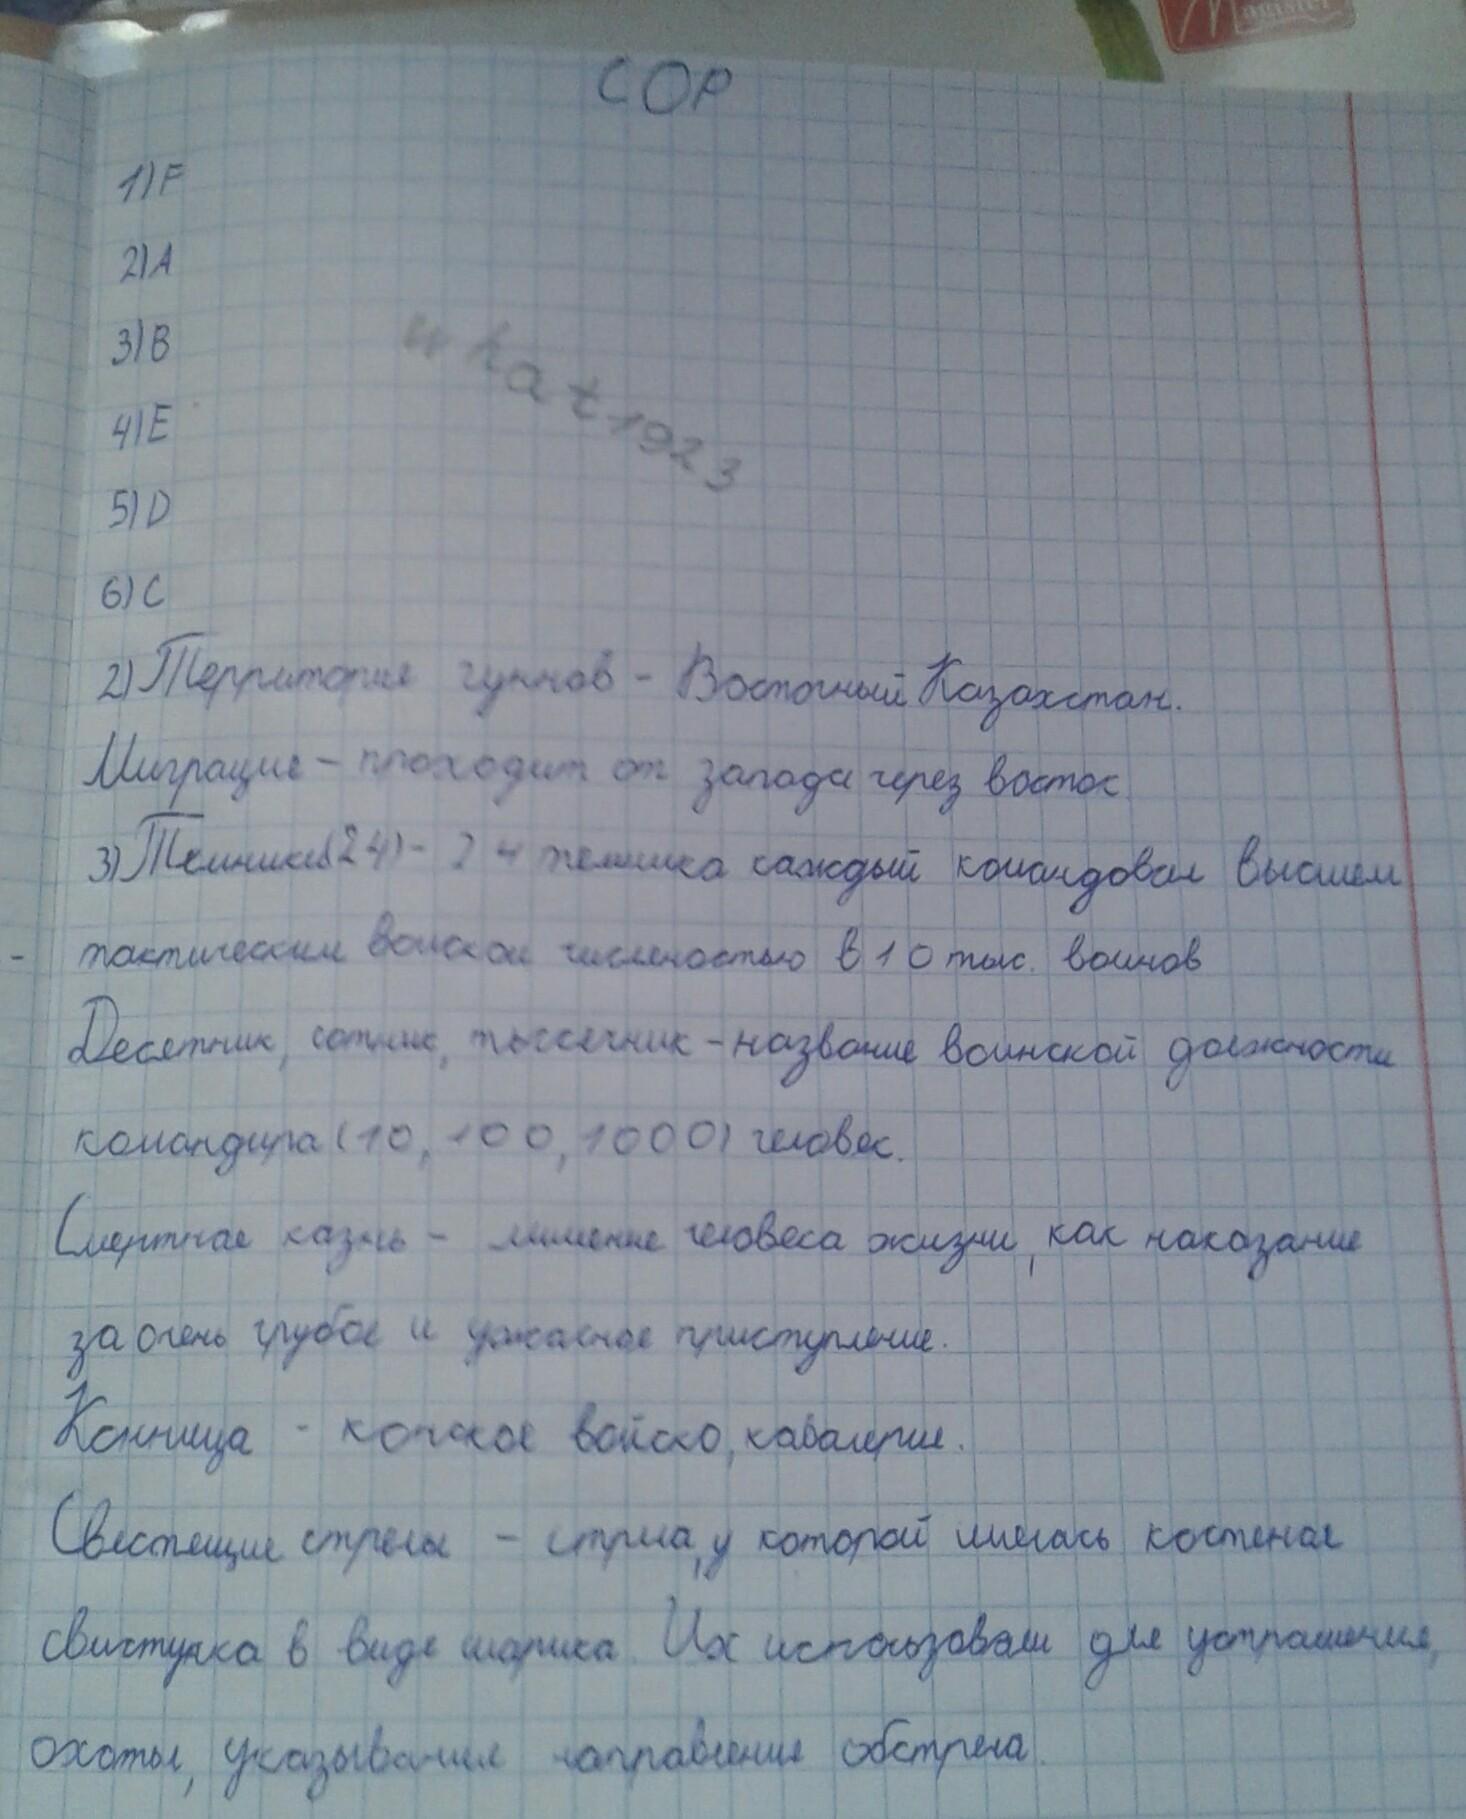 Magister
СОР
1) F
2) A
3) B
what1923
4) E
5) D
6) C
2) Территория гуннов - Восточный Казахстан.
Миграция - проходит от запада через восток
3) Темники(24) - 24 темника каждый командовал высшем
тактическим войском численостью в 10 тыс. воинов
Десятник, сотник, тыссечник - название воинской должности
командира (10, 100, 1000) человек.
Смертная казнь - лишение человека жизни, как наказание
за очень грубое и ужасное приступление.
Конница - конское войско, кавалерия.
Свестящие стрелы - стрела, у которой имелась костеная
свистулка в виде шарика. Их использовали для устрашения,
охоты, указывания направления обстрела.